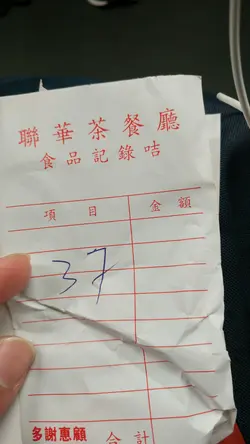 聯華茶餐廳
食品記錄咭
項目 金額
37
多謝惠顧 合計